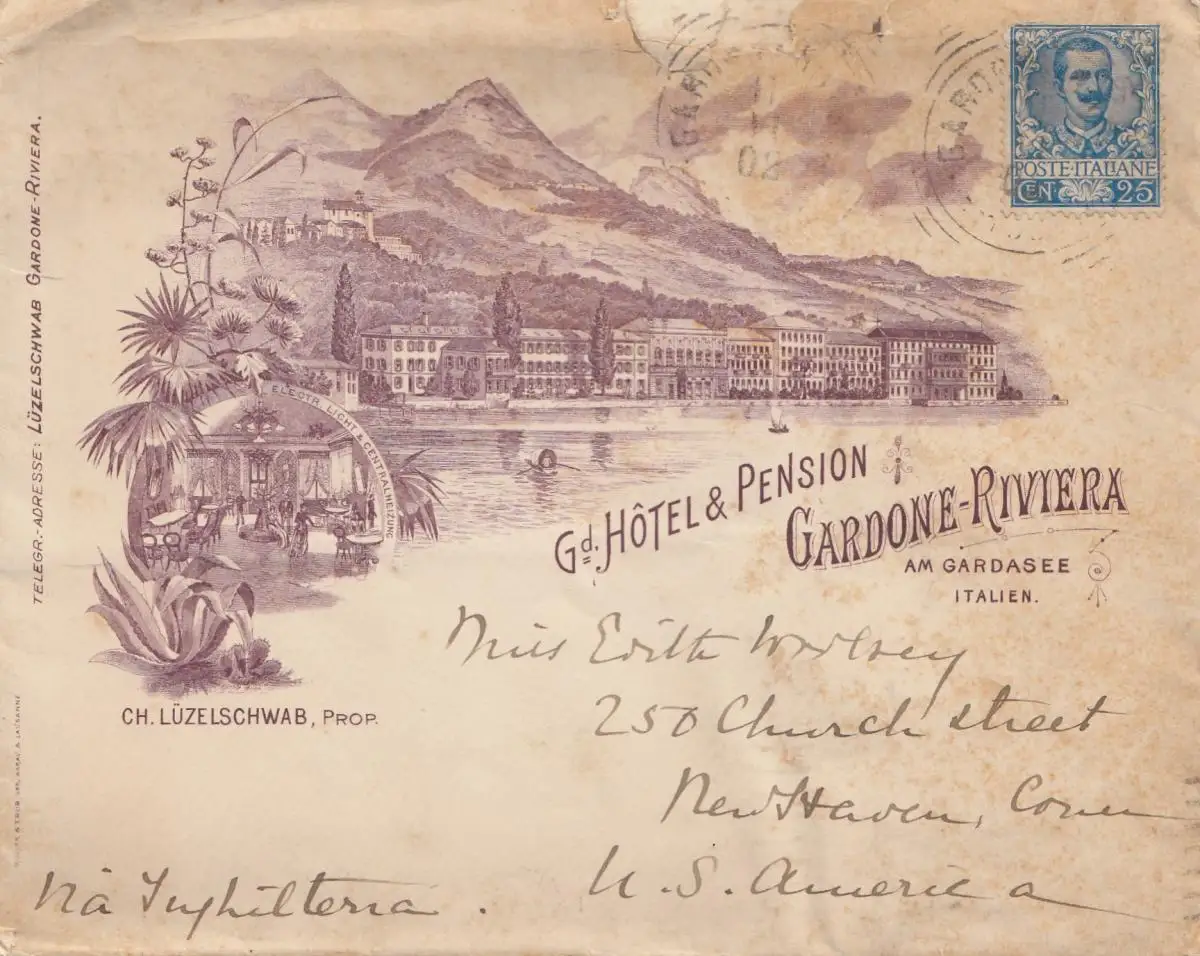 TELEGR.-ADRESSE: LÜZELSCHWAB GARDONE-RIVIERA.
GARDO
02
GARDO
POSTE·ITALIANE
CEN. 25
ELECTR. LIGHT & CENTRALHEIZUNG
Gd. HÔTEL & PENSION
GARDONE-RIVIERA
AM GARDASEE
ITALIEN.
CH. LÜZELSCHWAB, PROP.
AARAU & LAUSANNE
Miss Edith Woolsey
250 Church street
New Haven, Conn
U. S. America
Via Inghilterra.